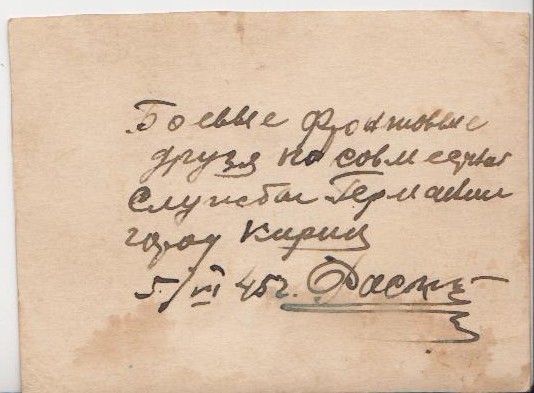 Боевые фронтовые
друзья по совместной
службы Германии
город Кириц
5/VI 45г.